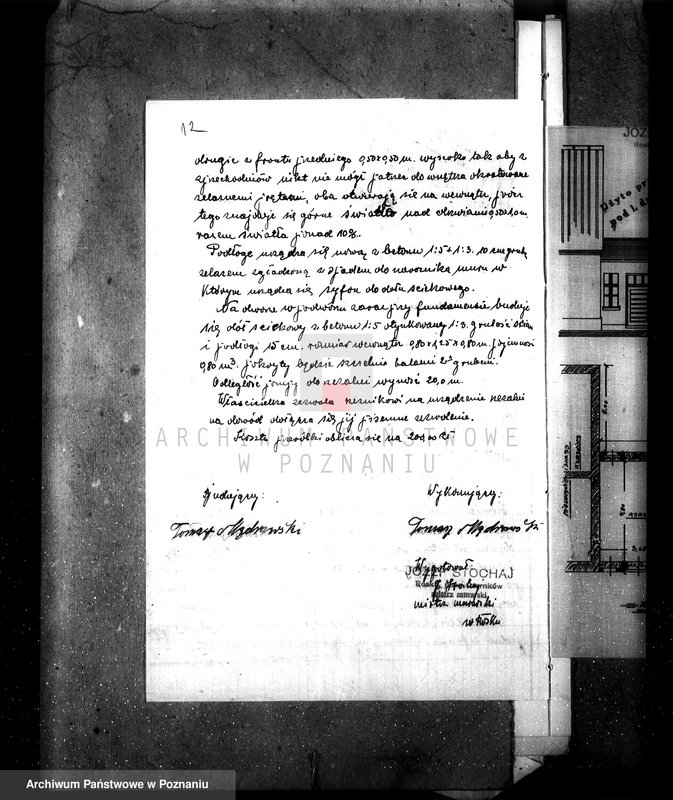 12
drugie z frontu przedniego 0,50x0,50 m. wysoko tak aby z
przechodniów nikt nie mógł patrzeć do wnętrza okratowane
żelaznemi prętami, oba otwierają się na wewnątrz, prócz
tego znajduje się górne światło nad drzwiami
razem światła ponad 10%.
Podłogę urządza się nową z betonu 1:5 + 1:3. 10 cm grubą
żelazem zgładzoną z spadem do narożnika muru w
którym urządza się syfon do dołu ściekowego.
Na dworze w podwórzu zaraz przy fundamencie buduje
się dół ściekowy z betonu 1:5 otynkowany 1:3. grubość ścian
i podłogi 15 cm. rozmiar wewnątrz 0,80 x 1,25 x 0,80 m. pojemność
0,80 m³. pokryty będzie szczelnie balami 2" grubemi.
Odległość pompy do rzeźni wynosi 20,0 m.
Właścicielka zezwala rzeźnikowi na urządzenie rzeźni
na dowód dołącza się jej pisemne zezwolenie.
Koszta przeróbki oblicza się na 200,00 zł
Budujący:
Wykonujący:
Tomasz Mądrowski
Tomasz Mądrowski
Wygotował:
JÓZEF STOCHAJ
mistrz murarski,
mistrz murarski
ARCHIWUM PAŃSTWOWE
W POZNANIU
Użyto
pod l. d.
Archiwum Państwowe w Poznaniu